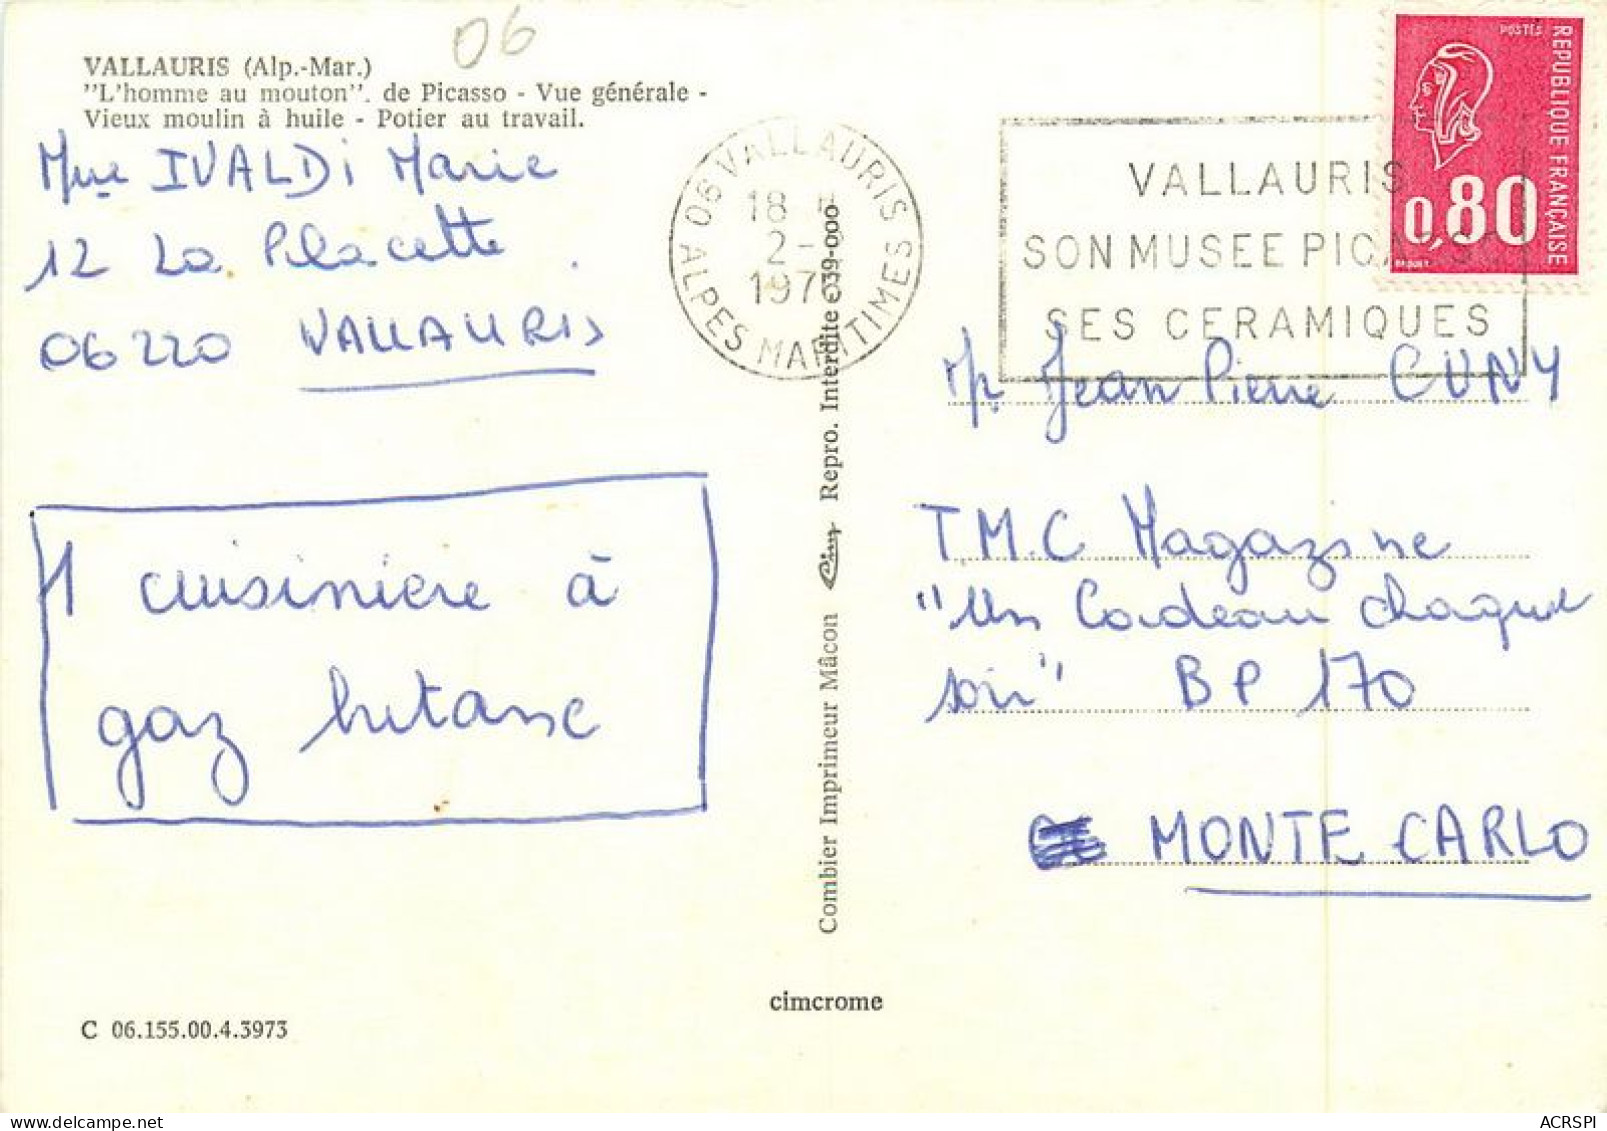 06
VALLAURIS (Alp.-Mar.)
"L'homme au mouton". de Picasso - Vue générale -
Vieux moulin à huile - Potier au travail.
Mme IVALDI Marie
12 La Placette
06220 VALLAURIS
1 cuisiniere à
gaz butane
C 06.155.00.4.3973
06 VALLAURIS
18 H
2-
197
ALPES MARITIMES
Combier Imprimeur Mâcon Repro. Interdite 039-000
cimcrome
VALLAURIS
SON MUSEE
SES CERAMIQUES
POSTES
REPUBLIQUE FRANÇAISE
0,80
Mr Jean Pierre CUNY
T.M.C Magazine
"Un Cadeau chaque
soir" BP 170
MONTE CARLO
ACRSPI